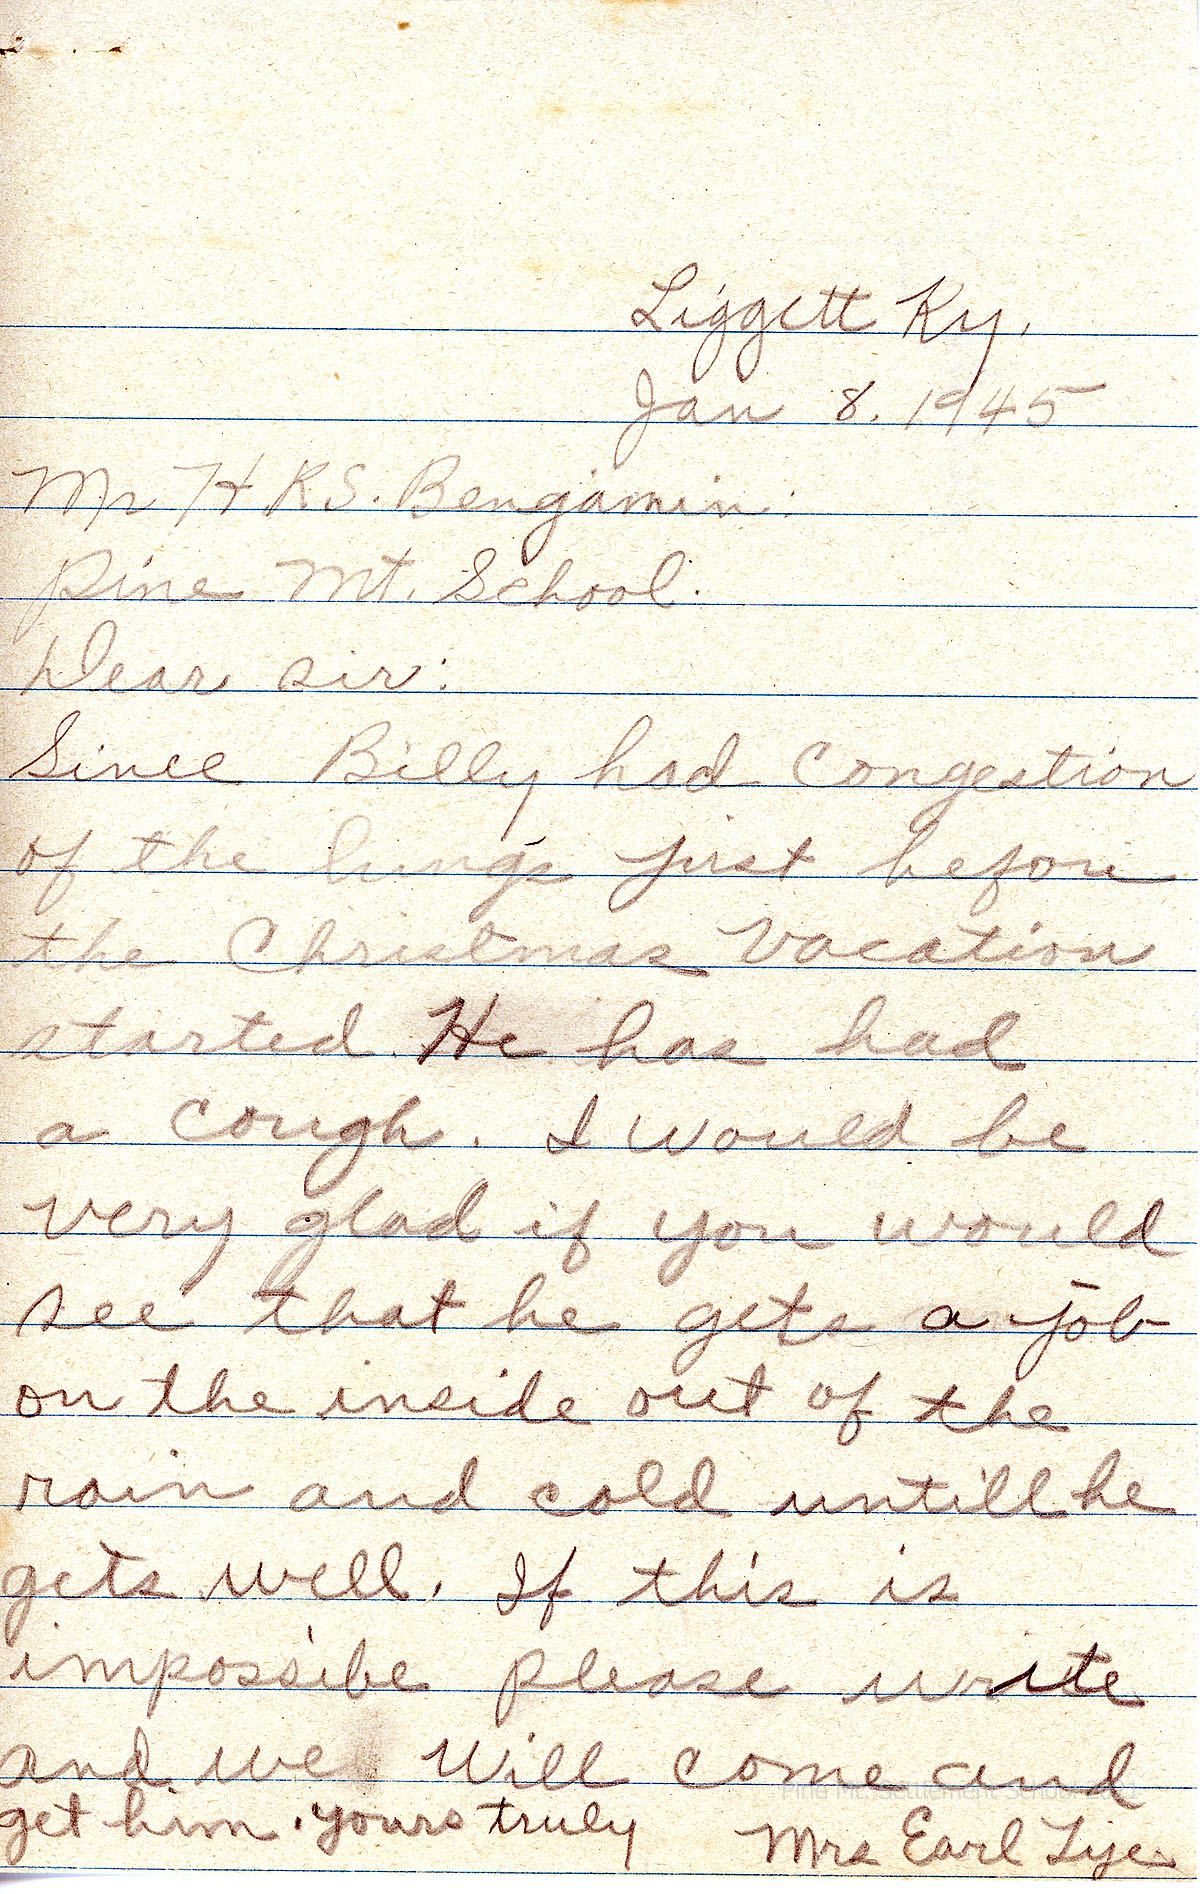 Liggett Ky.
Jan 8. 1945
Mr H R S. Bengamin:
Pine Mt. School.
Dear sir:
Since Billy had Congestion
of the lungs just before
the Christmas Vacation
started He has had
a cough. I would be
very glad if you would
see that he gets a job
on the inside out of the
rain and cold untill he
gets well. If this is
impossibe please write
and we will come and
get him. yours truly Mrs Earl Lye